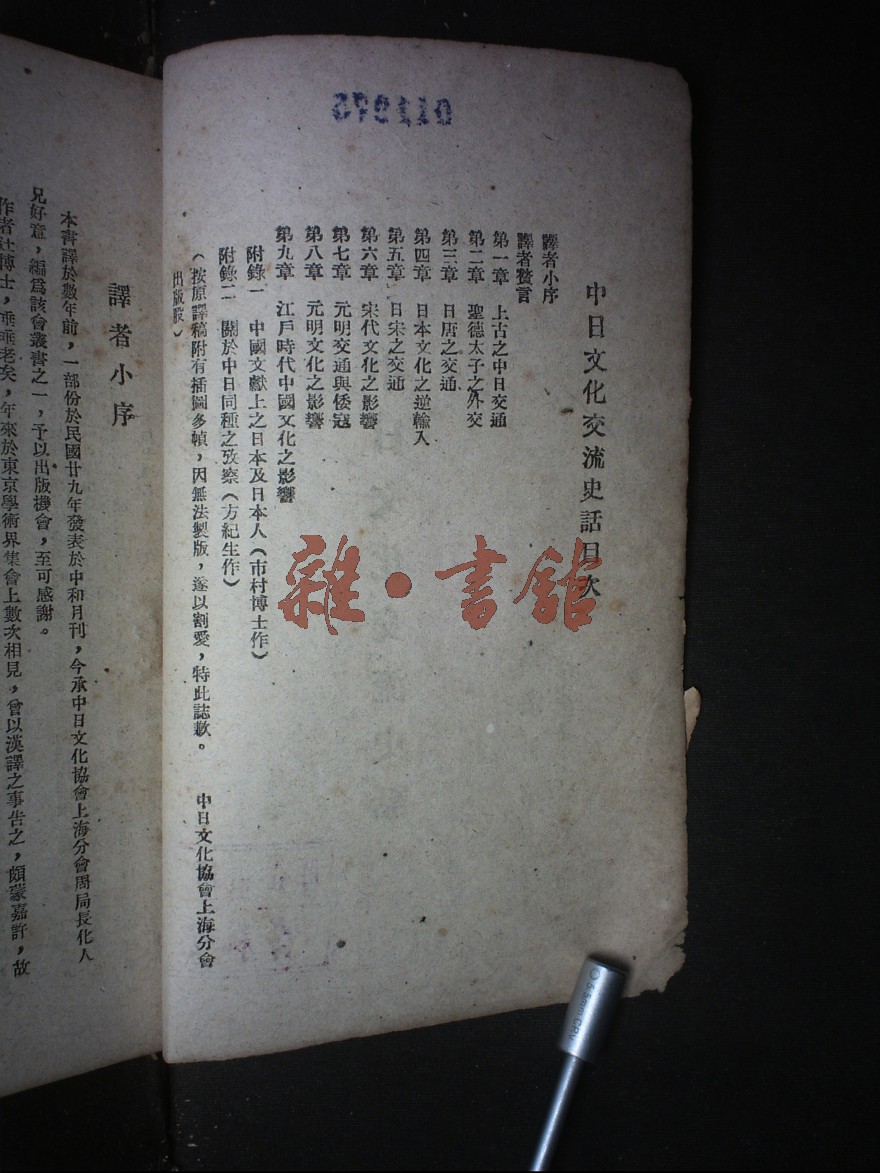 011945
中日文化交流史話目次
譯者小序
譯者贅言
第一章　上古之中日交通
第二章　聖德太子之外交
第三章　日唐之交通
第四章　日本文化之逆輸入
第五章　日宋之交通
第六章　宋代文化之影響
第七章　元明交通與倭寇
第八章　元明文化之影響
第九章　江戶時代中國文化之影響
附錄一　中國文獻上之日本及日本人（市村博士作）
附錄二　關於中日同種之攷察（方紀生作）
（按原譯稿附有插圖多幀，因無法製版，遂以割愛，特此誌歉。　中日文化協會上海分會
出版股）
譯者小序
本書譯於數年前，一部份於民國廿九年發表於中和月刊，今承中日文化協會上海分會周局長化人
兄好意，編爲該會叢書之一，予以出版機會，至可感謝。
作者辻博士，垂垂老矣，年來於東京學術界集會上數次相見，曾以漢譯之事告之，頗蒙嘉許，故
雜·書館
6.5mm CR-V